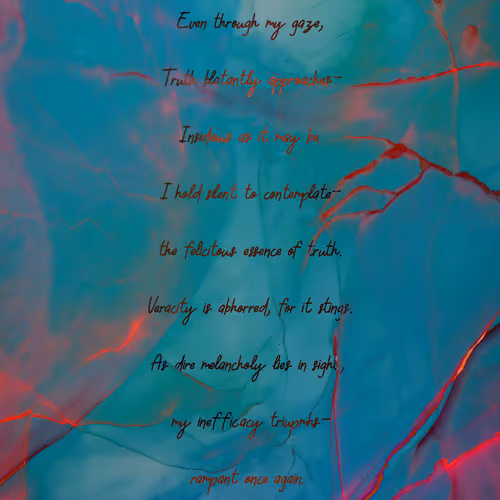 Even through my gaze,
Truth blatantly approaches-
Insidious as it may be
I hold silent to contemplate--
the felicitous essence of truth.
Veracity is abhorred, for it stings.
As dire melancholy lies in sight,
my inefficacy triupmhs-
rampant once again.